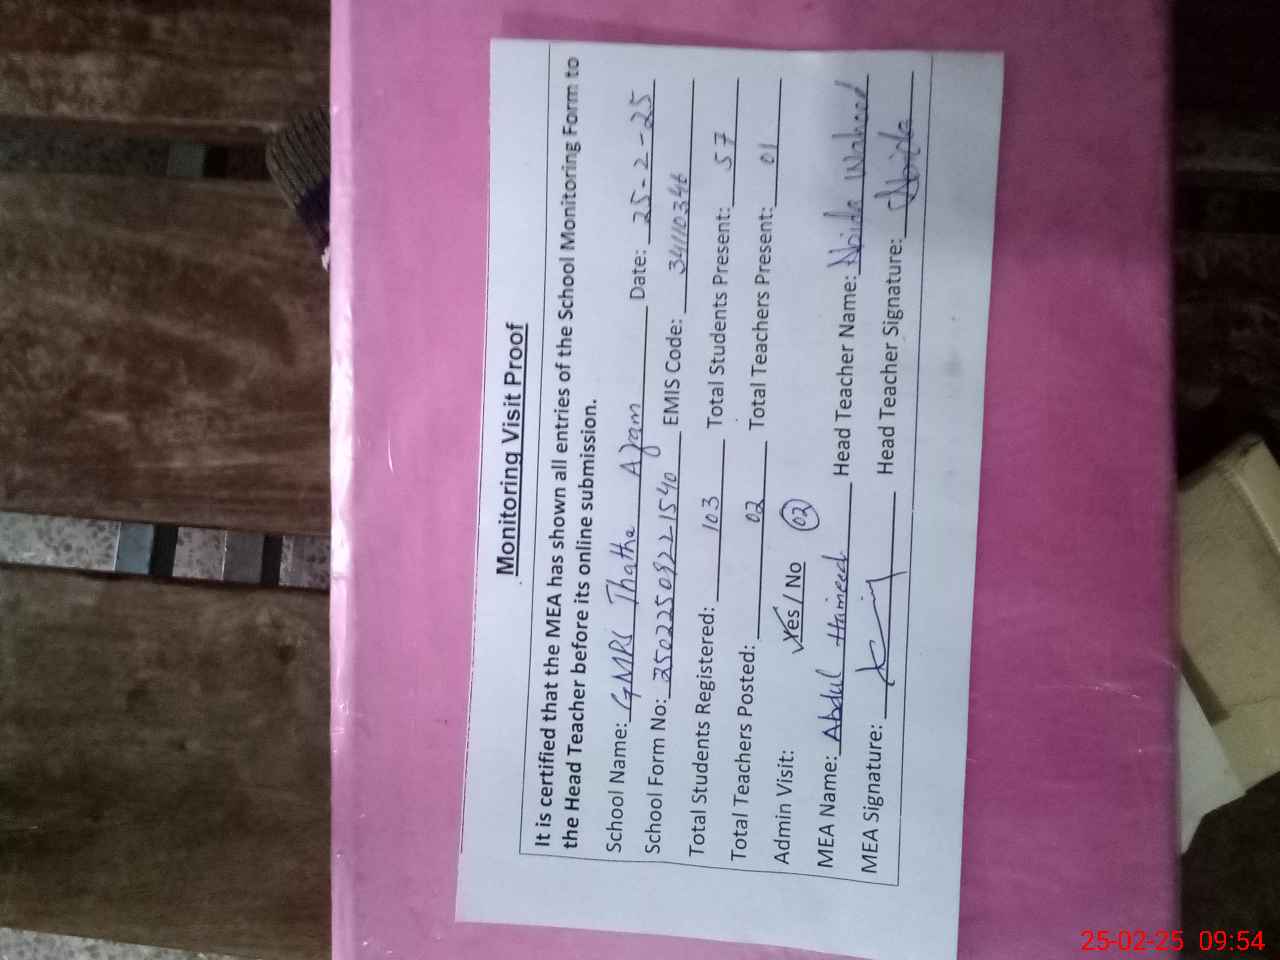 Monitoring Visit Proof
It is certified that the MEA has shown all entries of the School Monitoring Form to
the Head Teacher before its online submission.
School Name: GMPS Thatha Azam Date: 25-2-25
School Form No: 250225092221540 EMIS Code: 34110346
Total Students Registered: 103 Total Students Present: 57
Total Teachers Posted: 02 Total Teachers Present: 01
Admin Visit: Yes / No 02
MEA Name: Abdul Hameed Head Teacher Name: Waheed
MEA Signature: Head Teacher Signature:
25-02-25 09:54